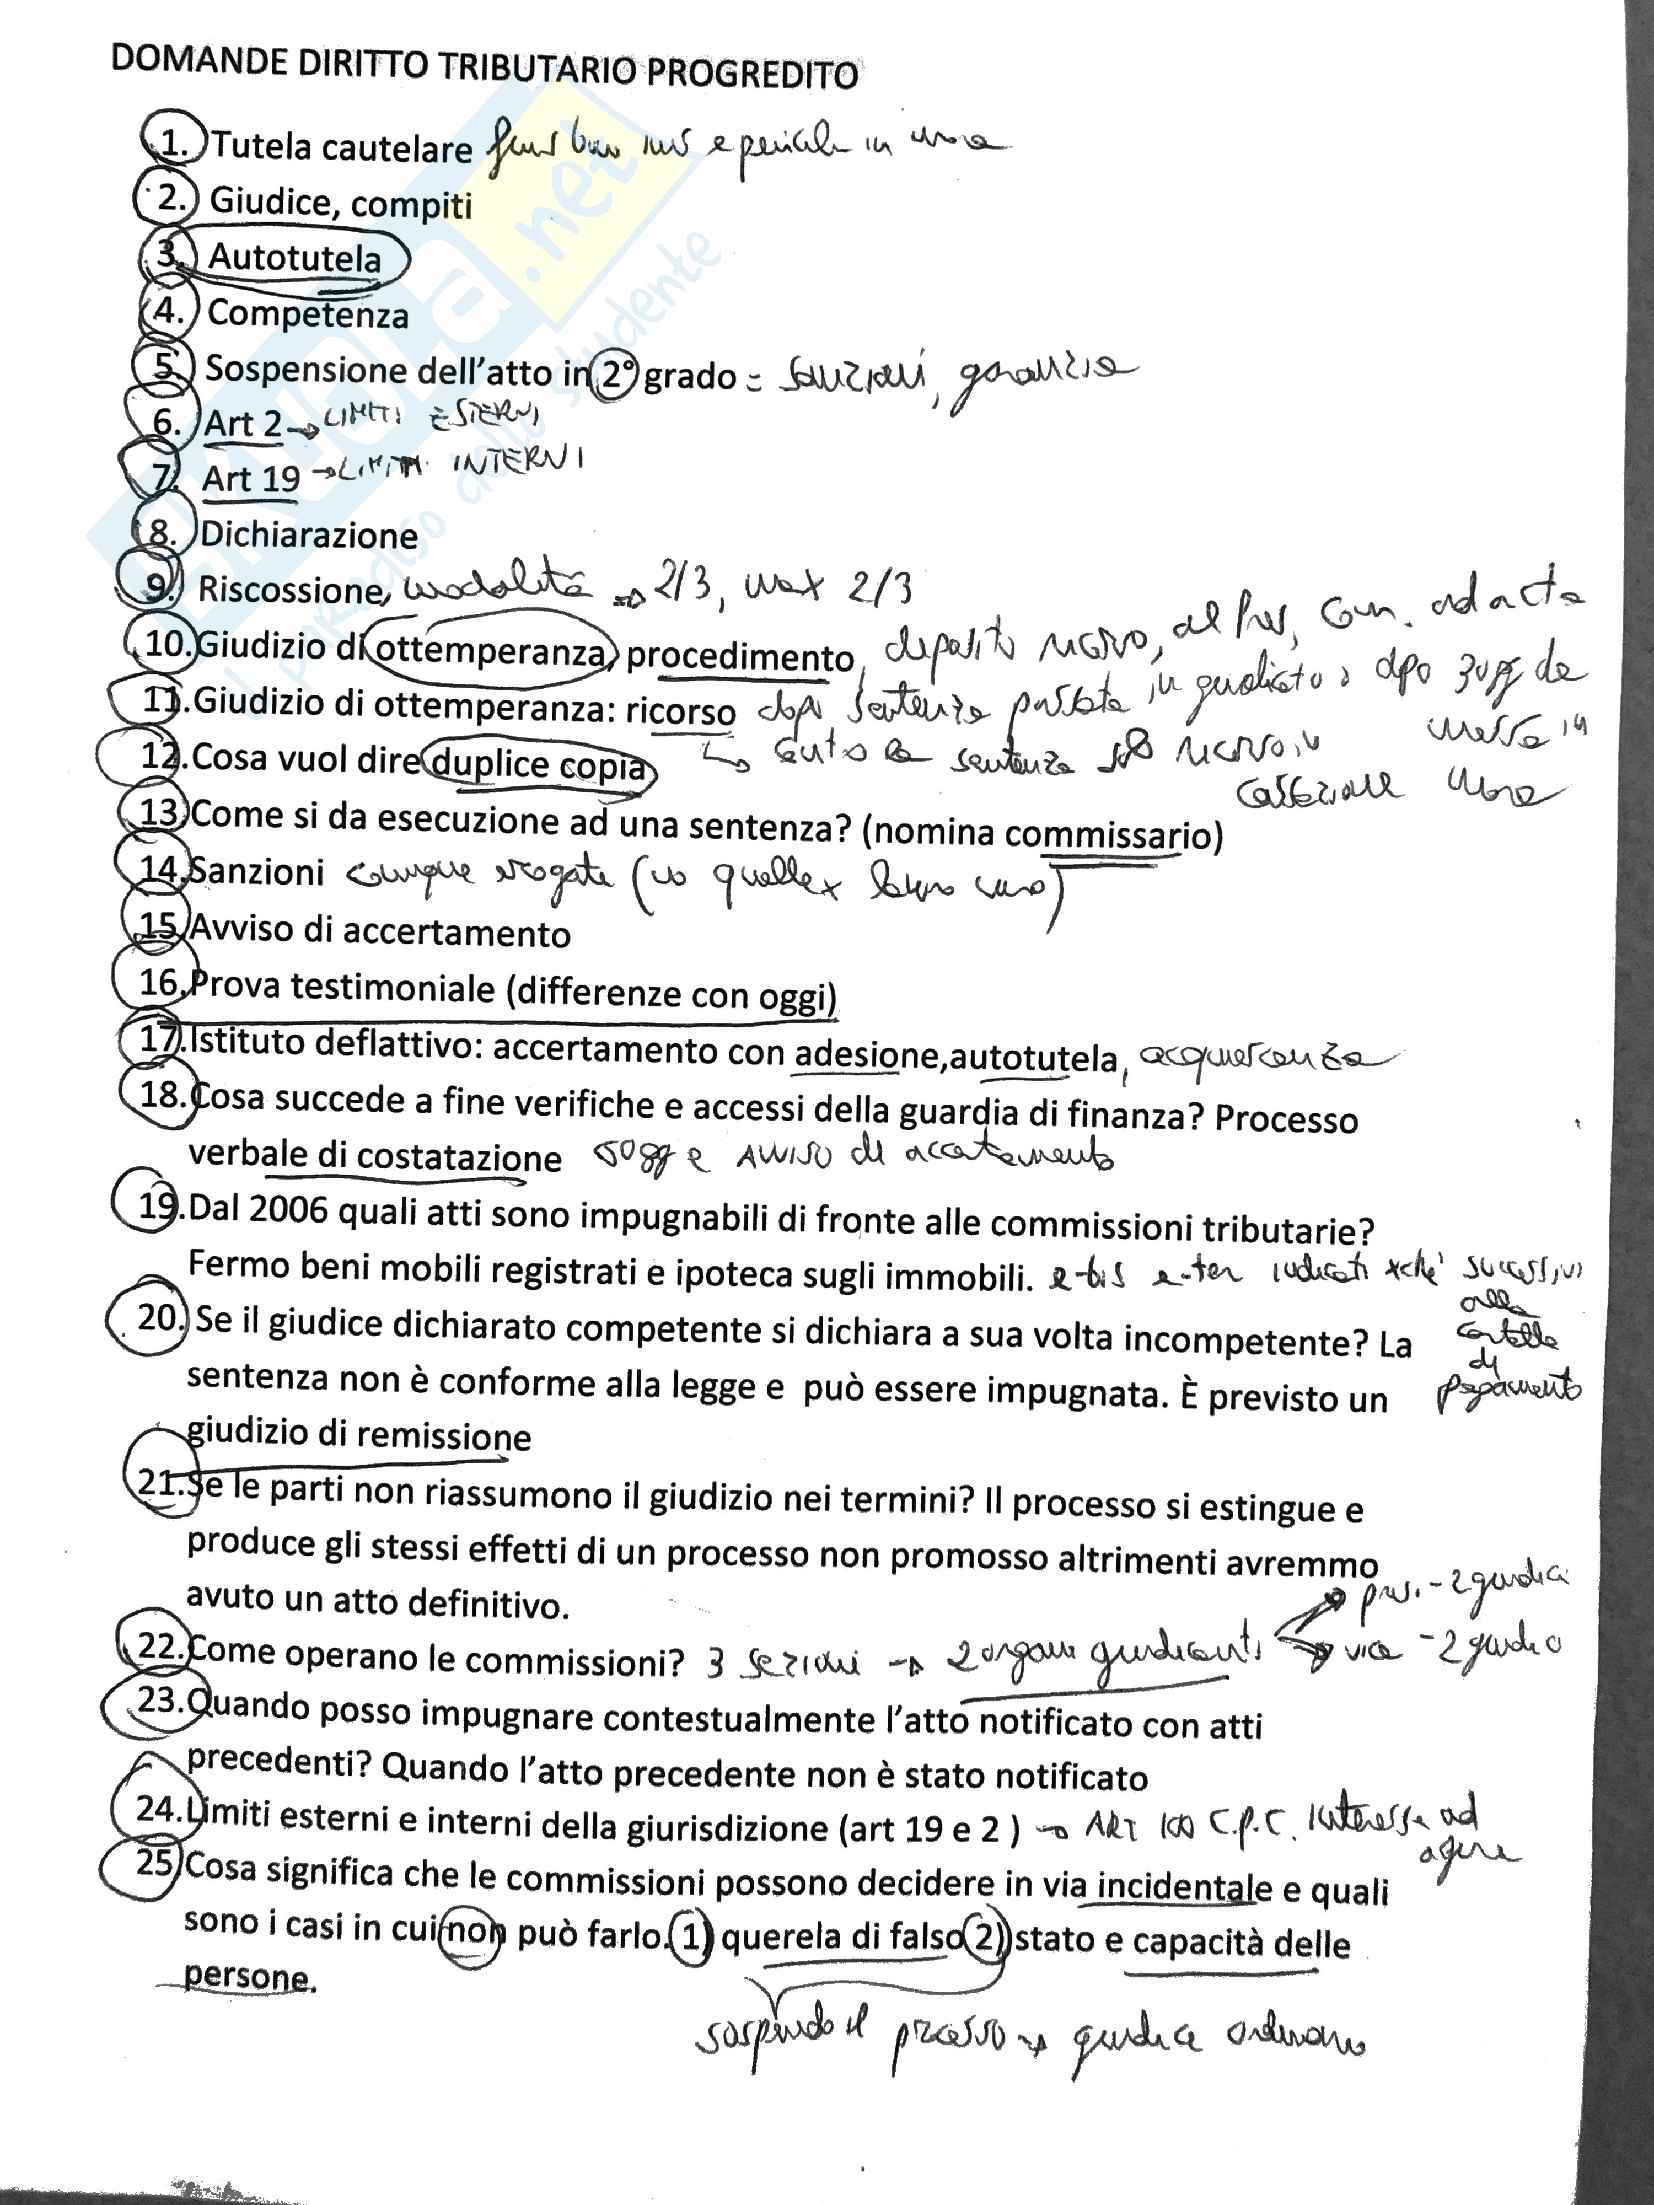 DOMANDE DIRITTO TRIBUTARIO PROGREDITO
1. Tutela cautelare fumus boni iuris e periculum in mora
2. Giudice, compiti
3. Autotutela
4. Competenza
5. Sospensione dell'atto in 2° grado = sanzioni, garanzia
6. Art 2 → LIMITI ESTERNI
7. Art 19 → LIMITI INTERNI
8. Dichiarazione
9. Riscossione, modalità → 2/3, max 2/3
10.Giudizio di ottemperanza, procedimento, deposito ricorso, al Pres, com. ad acta
11.Giudizio di ottemperanza: ricorso dopo sentenza passata in giudicato, dopo 30gg da
messa in
mora
↳ sentenza ricorso in
cassazione
12.Cosa vuol dire duplice copia
13.Come si da esecuzione ad una sentenza? (nomina commissario)
14.Sanzioni comunque irrogate (no quelle x lavoro nero)
15.Avviso di accertamento
16.Prova testimoniale (differenze con oggi)
17.Istituto deflattivo: accertamento con adesione,autotutela, acquiescenza
18.Cosa succede a fine verifiche e accessi della guardia di finanza? Processo
verbale di costatazione gg e AVVISO di accertamento
19.Dal 2006 quali atti sono impugnabili di fronte alle commissioni tributarie?
Fermo beni mobili registrati e ipoteca sugli immobili. e-bis e-ter indicati xchè successivi
alla
cartella
di
pagamento
20. Se il giudice dichiarato competente si dichiara a sua volta incompetente? La
sentenza non è conforme alla legge e può essere impugnata. È previsto un
giudizio di remissione
21.Se le parti non riassumono il giudizio nei termini? Il processo si estingue e
produce gli stessi effetti di un processo non promosso altrimenti avremmo
avuto un atto definitivo.
22.Come operano le commissioni? 3 sezioni → 2 organi giudicanti
pres. - 2 giudici
vice - 2 giudici
23.Quando posso impugnare contestualmente l'atto notificato con atti
precedenti? Quando l'atto precedente non è stato notificato
24.Limiti esterni e interni della giurisdizione (art 19 e 2 ) → ART 100 C.P.C. Interesse ad
agire
25.Cosa significa che le commissioni possono decidere in via incidentale e quali
sono i casi in cui non può farlo. 1) querela di falso 2) stato e capacità delle
persone.
sospendo il processo → giudice ordinario
.net